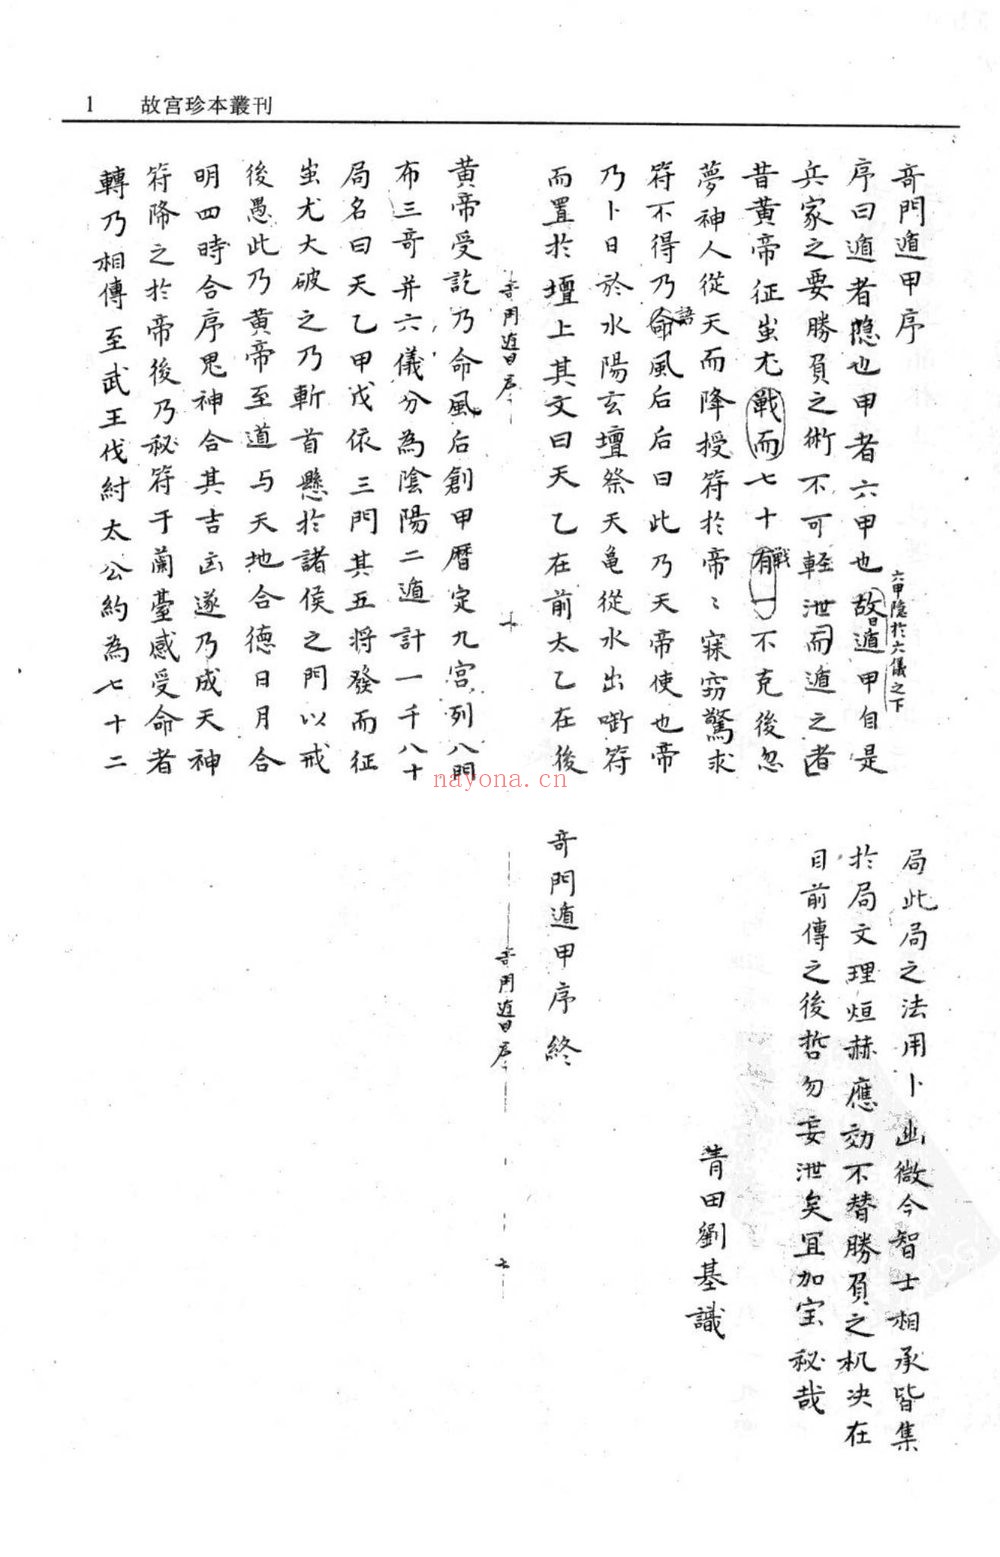 1 故宫珍本叢刊
奇門遁甲序
序曰遁者隐也甲者六甲也故曰遁甲自是
六甲隐於六儀之下
兵家之要勝負之術不可輕泄而遁之者
昔黄帝征蚩尤戰而七十有一戰不克後忽
夢神人從天而降授符於帝〻寐窃驚求
符不得乃命諮風后后曰此乃天帝使也帝
乃卜日於水陽玄壇祭天亀從水出啣符
而置於壇上其文曰天乙在前太乙在後
奇門遁甲序
黄帝受訖乃命風后創甲曆定九宫列八門
布三奇并六儀分為陰陽二遁計一千八十
局名曰天乙甲戊依三門其五将發而征
蚩尤大破之乃斬首懸於諸侯之門以戒
後愚此乃黄帝至道与天地合德日月合
明四時合序鬼神合其吉凶遂乃成天神
符降之於帝後乃秘符于蘭臺感受命者
轉乃相傳至武王伐紂太公約為七十二
局此局之法用卜幽微今智士相承皆集
於局文理烜赫應効不替勝負之机决在
目前傳之後哲勿妄泄矣宜加宝秘哉
青田劉基識
奇門遁甲序終
奇門遁甲序
nayona.cn